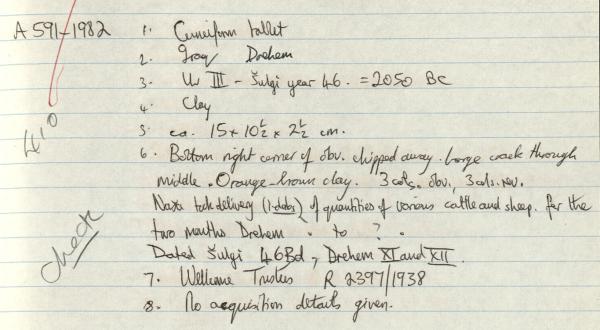 A 591-1982 1. Cuneiform tablet
2. Iraq Drehem
3. Ur III - Šulgi year 46. = 2050 BC
4. Clay
5. ca. 15 x 10½ x 2½ cm.
6. Bottom right corner of obv. chipped away. Large crack through
middle. Orange-brown clay. 3 cols. obv., 3 cols. rev.
Nasa takes delivery (ì-dab₅) of quantities of various cattle and sheep. for the
two months Drehem to ?
Dated Šulgi 46, Drehem XI and XII.
7. Wellcome Trustees R 2397/1938
8. No acquisition details given.
check